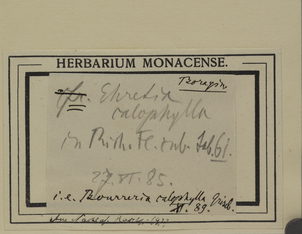 HERBARIUM MONACENSE.
Boragin.
Ehretia
calophylla
in Rich. Fl. cub. tab. 61.
27. XI. 85.
i. e. Bourreria calophylla Griseb.
XI. 89.